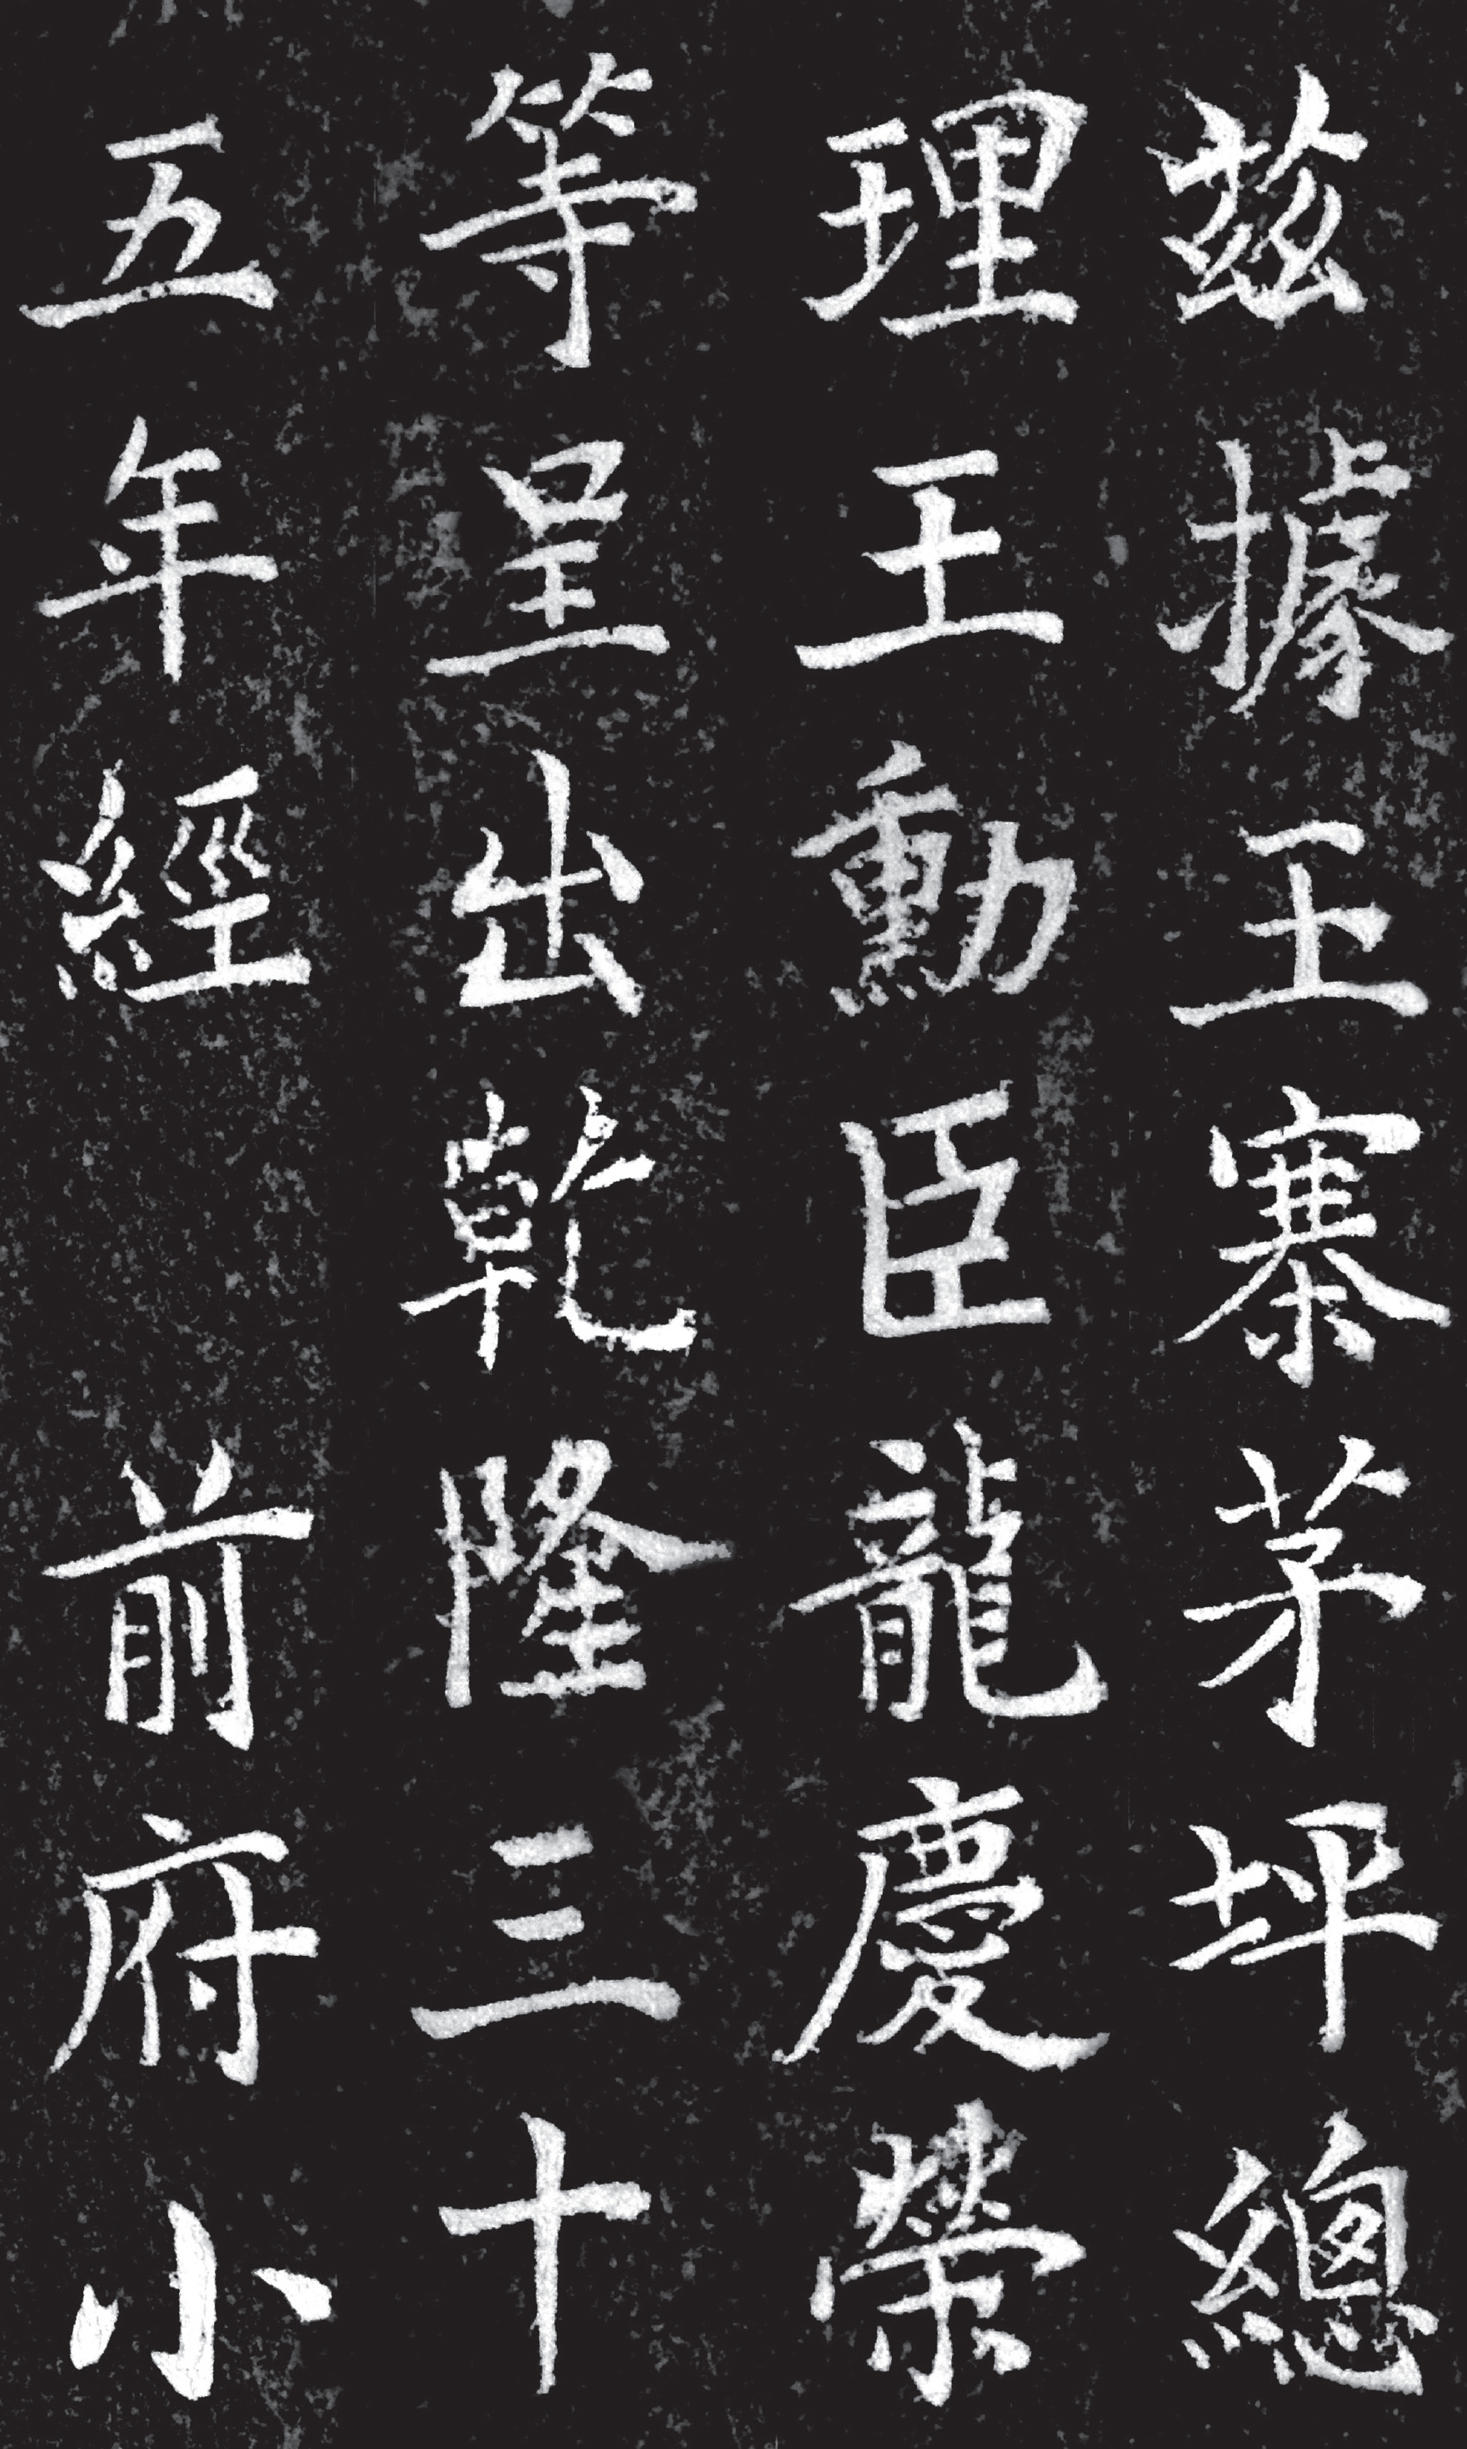 茲據王寨茅坪總
理王勳臣龍慶榮
等呈出乾隆三十
五年經　前府小